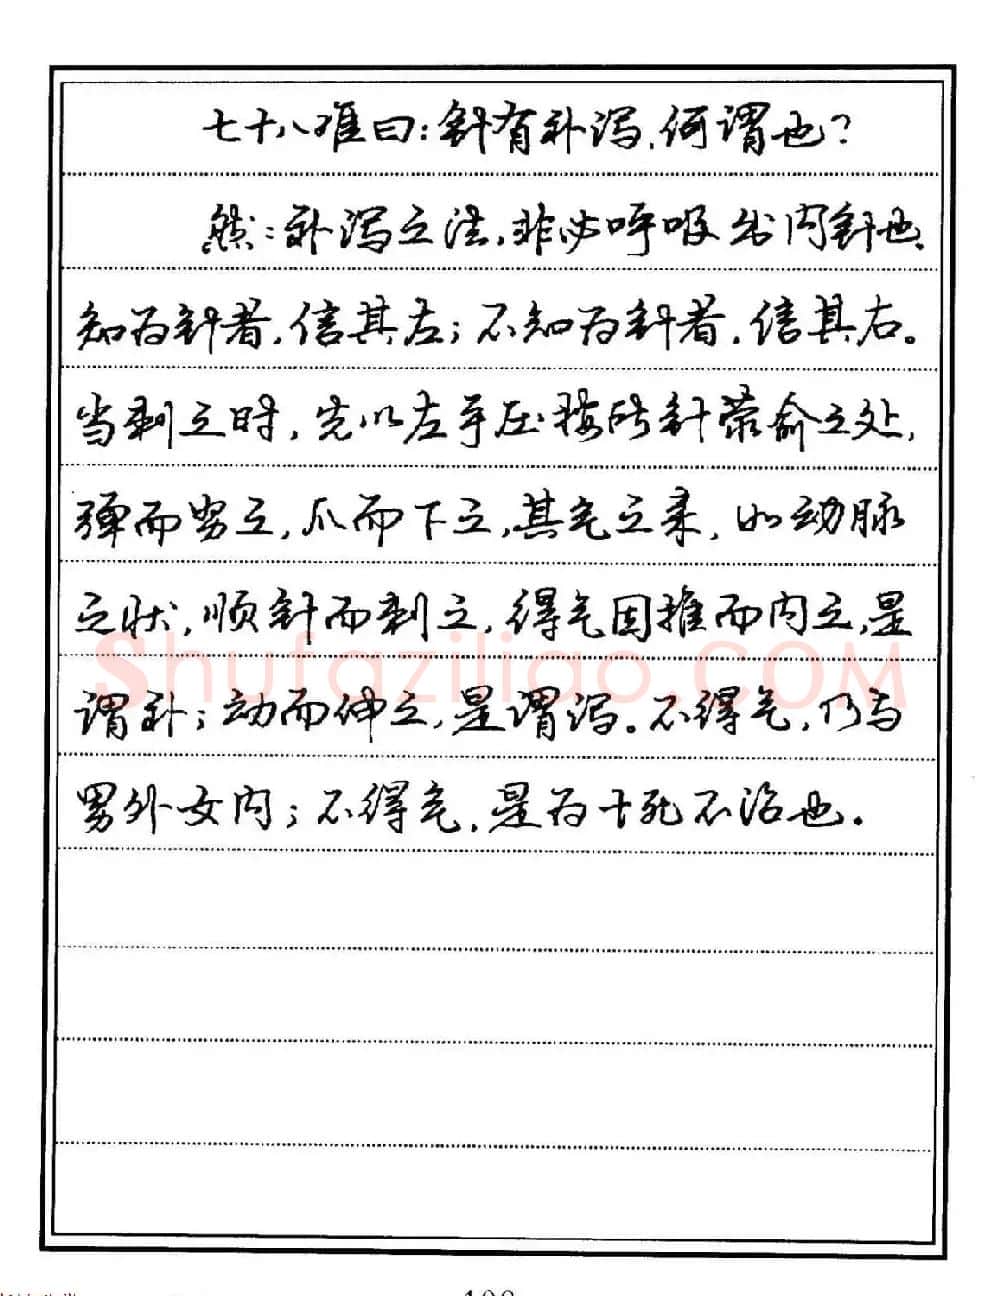 七十八难曰：针有补泻，何谓也？
然：补泻之法，非必呼吸出内针也。
知为针者，信其左；不知为针者，信其右。
当刺之时，先以左手压按所针荥俞之处，
弹而努之，爪而下之，其气之来，如动脉
之状，顺针而刺之，得气因推而内之，是
谓补；动而伸之，是谓泻。不得气，乃与
男外女内；不得气，是为十死不治也。
Shufaziliao.COM